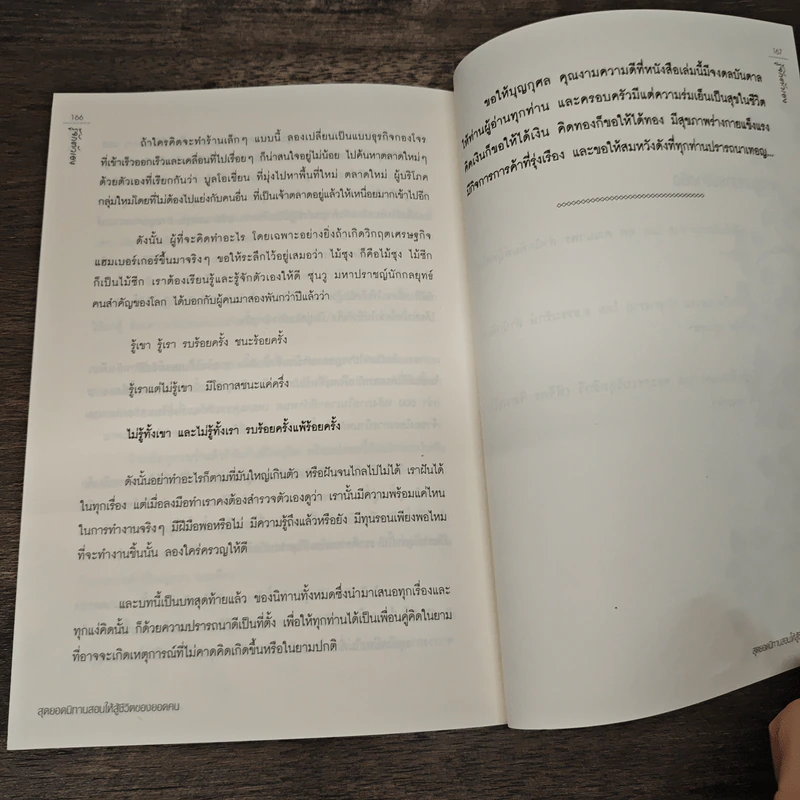 166
รู้จักตัวเอง
ถ้าใครคิดจะทำร้านเล็กๆ แบบนี้ ลองเปลี่ยนเป็นแบบธุรกิจกองโจร
ที่เข้าเร็วออกเร็วและเคลื่อนที่ไปเรื่อยๆ ก็น่าสนใจอยู่ไม่น้อย ไปค้นหาตลาดใหม่ๆ
ด้วยตัวเองที่เรียกกันว่า บูลโอเชี่ยน ที่มุ่งไปหาพื้นที่ใหม่ ตลาดใหม่ ผู้บริโภค
กลุ่มใหม่โดยที่ไม่ต้องไปแย่งกับคนอื่น ที่เป็นเจ้าตลาดอยู่แล้วให้เหนื่อยมากเข้าไปอีก
ดังนั้น ผู้ที่จะคิดทำอะไร โดยเฉพาะอย่างยิ่งถ้าเกิดวิกฤตเศรษฐกิจ
แฮมเบอร์เกอร์ขึ้นมาจริงๆ ขอให้ระลึกไว้อยู่เสมอว่า ไม้ซุง ก็คือไม้ซุง ไม้ซีก
ก็เป็นไม้ซีก เราต้องเรียนรู้และรู้จักตัวเองให้ดี ซุนวู มหาปราชญ์นักกลยุทธ์
คนสำคัญของโลก ได้บอกกับผู้คนมาสองพันกว่าปีแล้วว่า
รู้เขา รู้เรา รบร้อยครั้ง ชนะร้อยครั้ง
รู้เราแต่ไม่รู้เขา มีโอกาสชนะแค่ครึ่ง
ไม่รู้ทั้งเขา และไม่รู้ทั้งเรา รบร้อยครั้งแพ้ร้อยครั้ง
ดังนั้นอย่าทำอะไรก็ตามที่มันใหญ่เกินตัว หรือฝันจนไกลไปไม่ได้ เราฝันได้
ในทุกเรื่อง แต่เมื่อลงมือทำเราคงต้องสำรวจตัวเองดูว่า เรานั้นมีความพร้อมแค่ไหน
ในการทำงานจริงๆ มีฝีมือพอหรือไม่ มีความรู้ถึงแล้วหรือยัง มีทุนรอนเพียงพอไหม
ที่จะทำงานชิ้นนั้น ลองใคร่ครวญให้ดี
และบทนี้เป็นบทสุดท้ายแล้ว ของนิทานทั้งหมดซึ่งนำมาเสนอทุกเรื่องและ
ทุกแง่คิดนั้น ก็ด้วยความปรารถนาดีเป็นที่ตั้ง เพื่อให้ทุกท่านได้เป็นเพื่อนคู่คิดในยาม
ที่อาจจะเกิดเหตุการณ์ที่ไม่คาดคิดเกิดขึ้นหรือในยามปกติ
สุดยอดนิทานสอนให้สู้ชีวิตของยอดคน
167
รู้จักตัวเอง
ขอให้บุญกุศล คุณงามความดีที่หนังสือเล่มนี้มีจงดลบันดาล
ให้ท่านผู้อ่านทุกท่าน และครอบครัวมีแต่ความร่มเย็นเป็นสุขในชีวิต
คิดเงินก็ขอให้ได้เงิน คิดทองก็ขอให้ได้ทอง มีสุขภาพร่างกายแข็งแรง
มีกิจการการค้าที่รุ่งเรือง และขอให้สมหวังดังที่ทุกท่านปรารถนาเทอญ...
สุดยอดนิทานสอนให้สู้